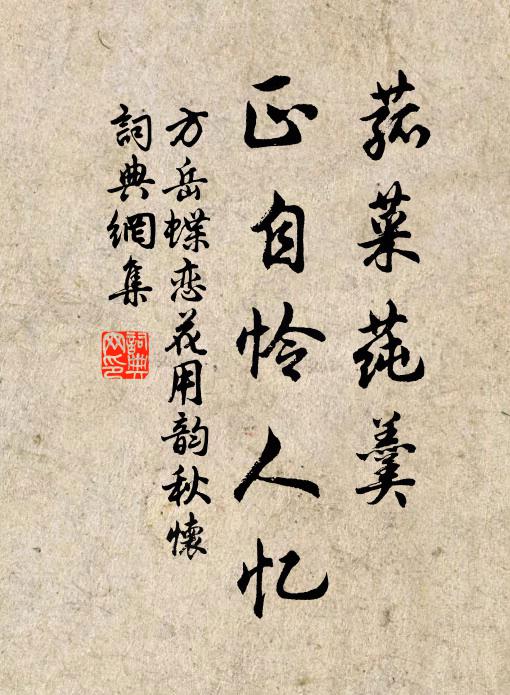 菰菜莼羹
正自怜人忆
方岳蝶恋花用韵秋懷
詞典網集
詞典
网印